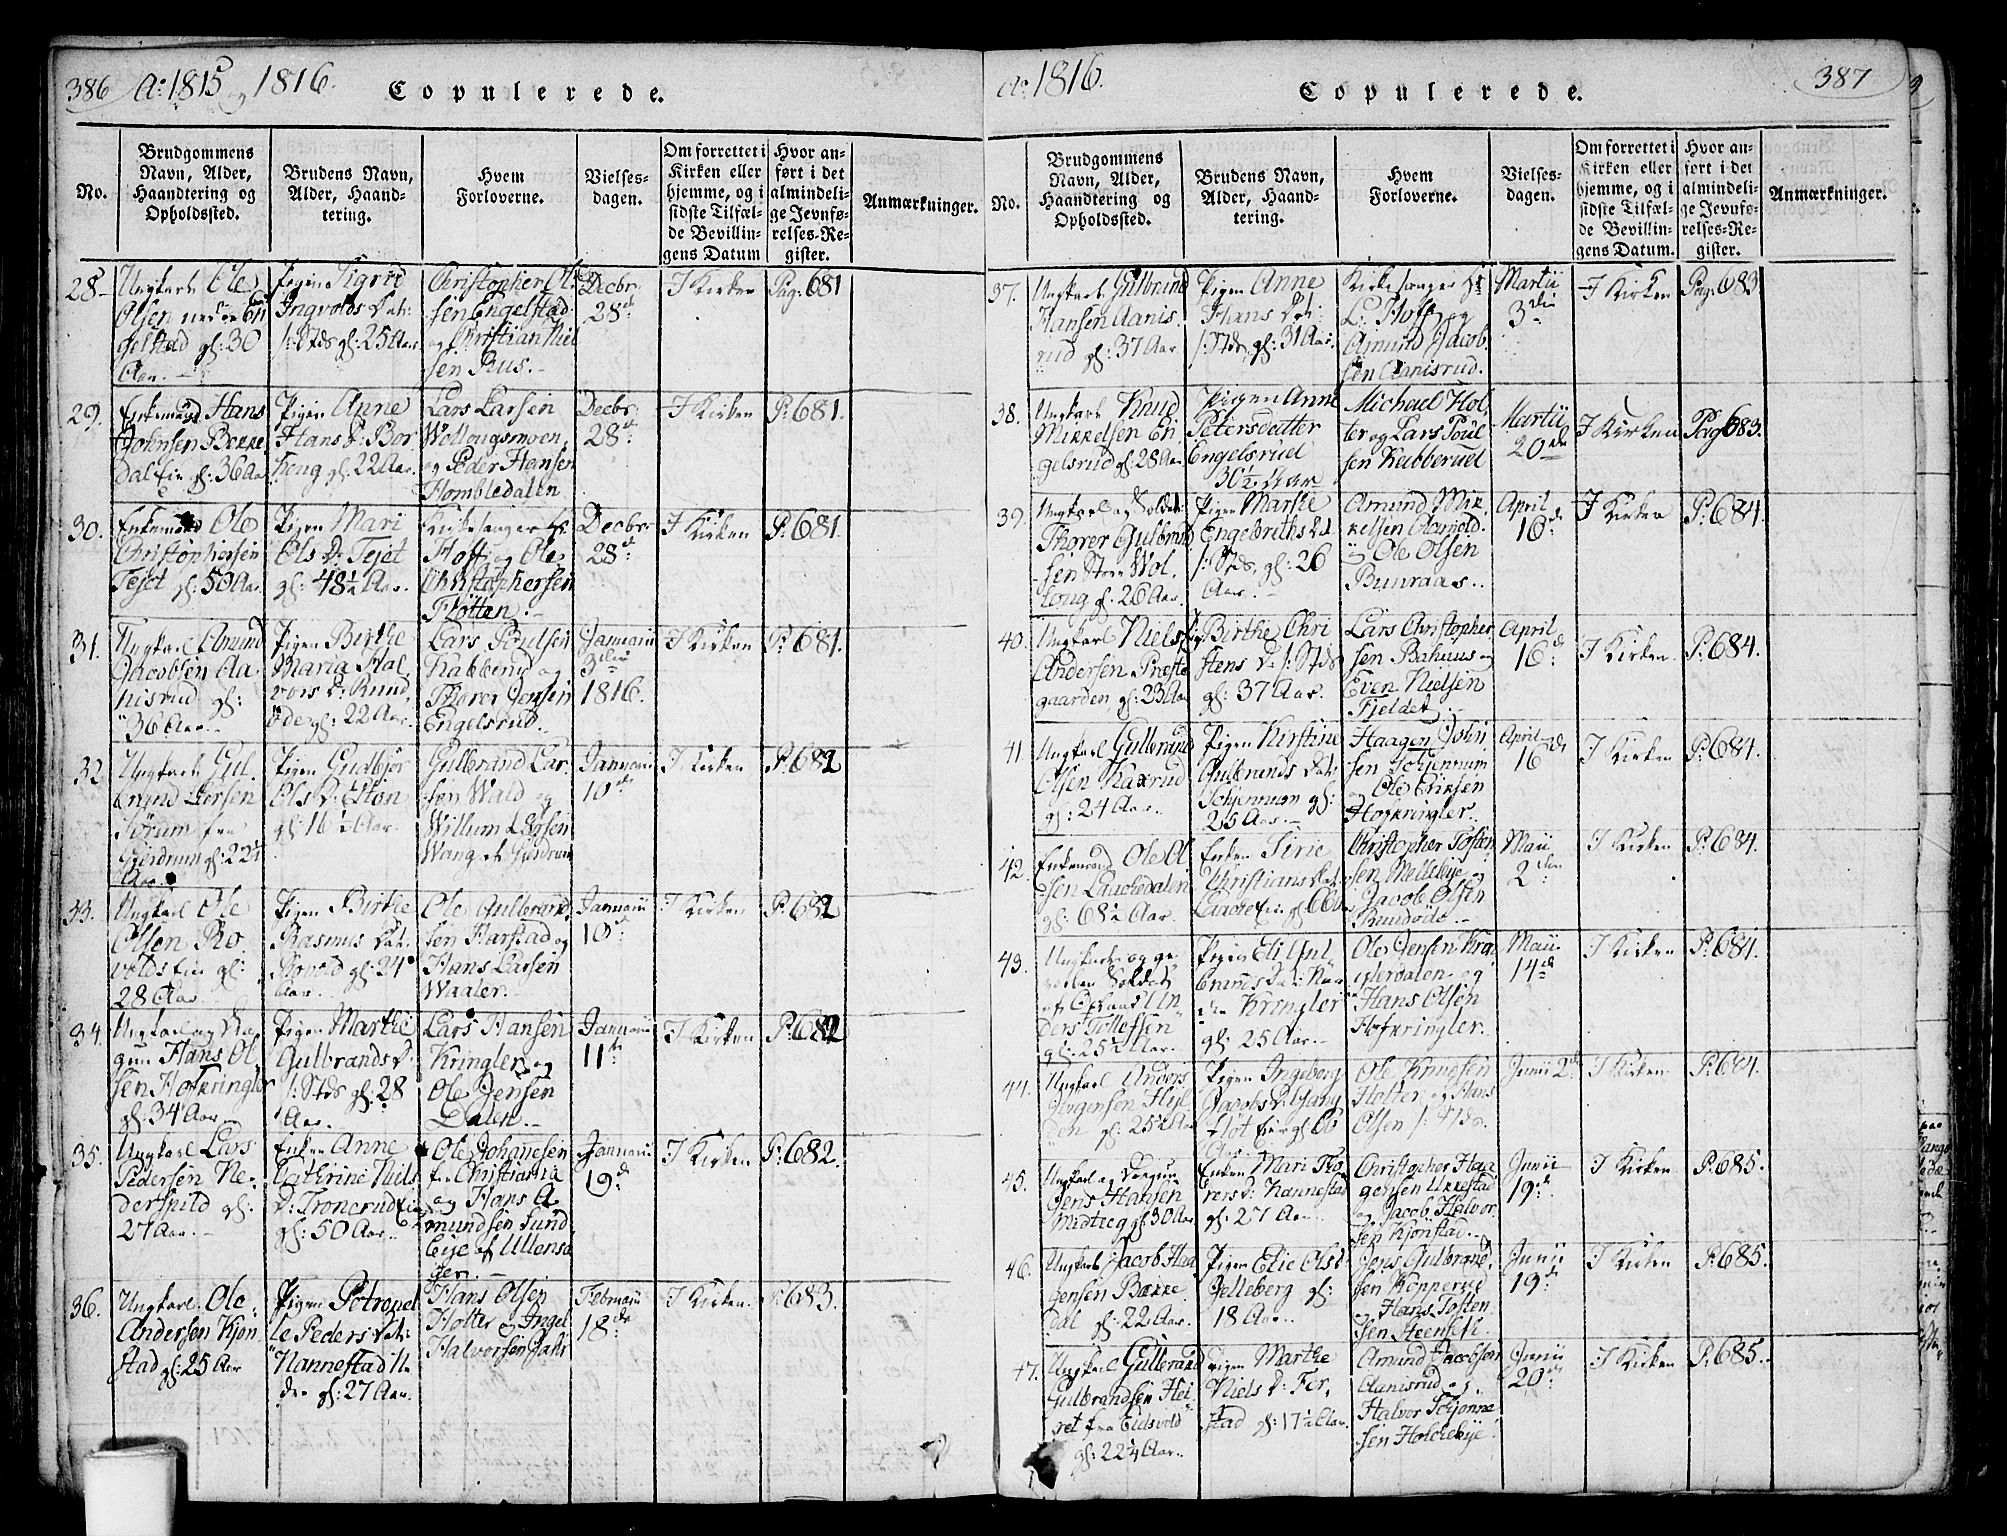 386 Ao: 1815 og 1816.
Copulerede.
No.
Brudgommens
Navn, Alder,
Haandtering og
Opholdssted.
Brudens Navn,
Alder, Haand-
tering.
Hvem
Forloverne.
Vielses-
dagen.
Om forrettet i
Kirken eller
hjemme, og i
sidste Tilfæl-
de Bevillin-
gens Datum
Hvor an-
ført i det
almindeli-
ge Jevnfø-
relses-Re-
gister.
Anmærkninger.
28
Ungkarl Ole
Olsen nedre En
gelstad gl: 30
Aar.
Pigen Sigrid
Ingvolds Dat:
/: Stds gl: 25 Aar
Christopher Ol
sen Engelstad
og Christian Niel
sen Ruus.
Decbr.
28de
I Kirken
Pag: 681
29.
Enkemand Hans
Johnsen Bekke
Dal Eie gl: 36 Aar
Pigen Anne
Hans D: Bor
houg gl: 22 Aar.
Lars Larsen
Wollougsmoen
og Peder Hansen
Hombledalen
Decbr.
28de
I Kirken
P: 681.
30.
Enkemand Ole
Christophersen
Tejet gl: 50 Aar
Pigen Mari
Ols D: Tejet
gl: 48½ Aar.
Kirkesanger Hr.
Hoff og Ole
Christophersen
Fløtten.
Decbr.
28de
I Kirken
P: 681.
31.
Ungkarl Amund
Jacobsen Aa
nisrud gl:
36 Aar.
Pigen Birthe
Maria Hal
vors D: Rund
øde gl: 22 Aar.
Lars Poulsen
Kabberud og
Thorer Jensen
Engelsrud.
Januarii
3die
1816.
I Kirken
P: 681.
32
Ungkarl Gul
brand Larsen
Sørum fra
Gjerdrum gl: 22½
Aar.
Pigen Gudbjør
Ols D: Elton
gl: 16½ Aar.
Gulbrand Lar
sen Wald og
Willum Larsen
Wang af Gjerdrum
Januarii
10de
I Kirken
P: 682
33.
Ungkarl Ole
Olsen Ro
volds Eie gl:
28 Aar.
Pigen Birthe
Rasmus Dat:
Rovold gl: 24
Aar.
Ole Gulbrand
sen Harstad og
Hans Larsen
Waaler.
Januarii
10de
I Kirken
P: 682
34.
Ungkarl og Dra
gun Hans Ol
sen Hofkringler
gl: 34 Aar
Pigen Marthe
Gulbrands D:
/: Stds gl: 28
Aar.
Lars Hansen
Kringler og
Ole Jensen
Dalen.
Januarii
11te
I Kirken
P: 682
35.
Ungkarl Lars
Pedersen Ne
derspild gl:
27 Aar.
Enken Anne
Cathrine Niels
D: Tronerud Eie
gl: 50 Aar.
Ole Johannesen
fra Christiania
og Hans A
mundsen Sund
bye af Ullensa
ger.
Januarii
19de
I Kirken
P: 682.
36.
Ungkarl Ole
Andersen Kjøn
stad gl: 25 Aar
Pigen Petronel
le Peders Dat:
Nannestad
gl: 27 Aar.
Hans Olsen
Holter og Ingel
Halvorsen
Februarii
18de
I Kirken.
P: 683.
Ao 1816.
Copulerede.
387
No.
Brudgommens
Navn, Alder,
Haandtering og
Opholdssted.
Brudens Navn,
Alder, Haand-
tering.
Hvem
Forloverne.
Vielses-
dagen.
Om forrettet i
Kirken eller
hjemme, og i
sidste Tilfæl-
de Bevillin-
gens Datum.
Hvor an-
ført i det
almindeli-
ge Jevnfø-
relses-Re-
gister.
Anmærkninger.
37.
Ungkarl Gulbrand
Hansen Aanis
rud gl: 37 Aar
Pigen Anne
Hans Dat:
/: Stds, gl: 31 Aar.
Kirkesanger Hr:
L: Hoff og
Amund Jacob
sen Aanisrud.
Martii
3die
I Kirken
Pag: 683
38.
Ungkarl Knud
Mikkelsen En
gelsrud gl: 28 Aar
Pigen Anne
Petersdatter
Engelsrud
30½ Aar
Michael Hol
ter og Lars Poul
sen Kabberud
Martii
20de
I Kirken
Pag 683.
39.
Ungkarl og Soldat
Thorer Gulbrand
sen Store Wol
loug gl: 26 Aar.
Pigen Marthe
Engelbreths Dat
/: Stds, gl: 26
Aar.
Amund Mik
kelsen Aamold
og Ole Olsen
Buuraas.
April
10de
I Kirken
P: 684.
40.
Ungkarl Niels
Andersen Præste
gaarden gl: 23 Aar
Birthe Chri
stens D: /: Stds
gl: 37 Aar.
Lars Christopher
sen Bahuus og
Even Nielsen
Fjeldet
April
16de
I Kirken.
P: 684.
41
Ungkarl Gulbrand
Olsen Kaxrud
gl: 24 Aar.
Pigen Kirstine
Gulbrands Dat:
Schjennum gl:
25 Aar.
Haagen John
sen Schjennum
og Ole Eriksen
Hofkringler.
April
16de
I Kirken
P: 684.
42.
Enkemand Ole Ol
sen Laachedalen
gl: 68½ Aar.
Enken Sirie
Christians Dat:
Laache Eie gl: 60
Christopher Tosten
sen Mellebye og
Jacob Olsen
Rundøde
Maii
2den
I Kirken
P: 684.
43.
Ungkarl og ge
vorben Soldat
Un
ders Tollefsen
gl: 25½ Aar.
Pigen Eli Gul
brands Dat:
Kringler
gl: 25 Aar.
Ole Jensen Kra
gerdalen og
Hans Olsen
Hofkringler.
Maii
14de
I Kirken
P: 684.
44.
Ungkarl Anders
Jørgensen Hyl
den gl: 25½ Aar
Pigen Ingeborg
Jacobs D:
Fløt Eie gl: 60
Ole Knudsen
Holter og Hans
Olsen /: Stds.
Junii 2de
I Kirken
P: 684.
45.
Ungkarl og Dragun
Jens Hansen
Midtteg gl: 30 Aar
Enken Mari Tho
rers D: Nannestad
gl: 27 Aar.
Christopher Haa
gensen Ukkestad
og Jacob Halvor
sen Kjønstad.
Junii
19de
I Kirken
P: 685.
46.
Ungkarl Jacob Haa
gensen Bekke
Dal gl: 22 Aar.
Pigen Elie Olsd:
Jelleberg gl:
18 Aar.
Jens Gulbrand
sen Kopperud
og Hans Tosten
sen Steenseth.
Junii
19de
I Kirken
P: 685.
47.
Ungkarl Gulbrand
Gulbrandsen Hei
ret fra Eidsvold
gl: 22¼ Aar.
Pigen Marthe
Niels D: For
stad gl: 17½ Aar.
Amund Jacobsen
Aanisrud og
Halvor Schjønne
sen Holckebye.
Junii
20de
I Kirken
P: 685.